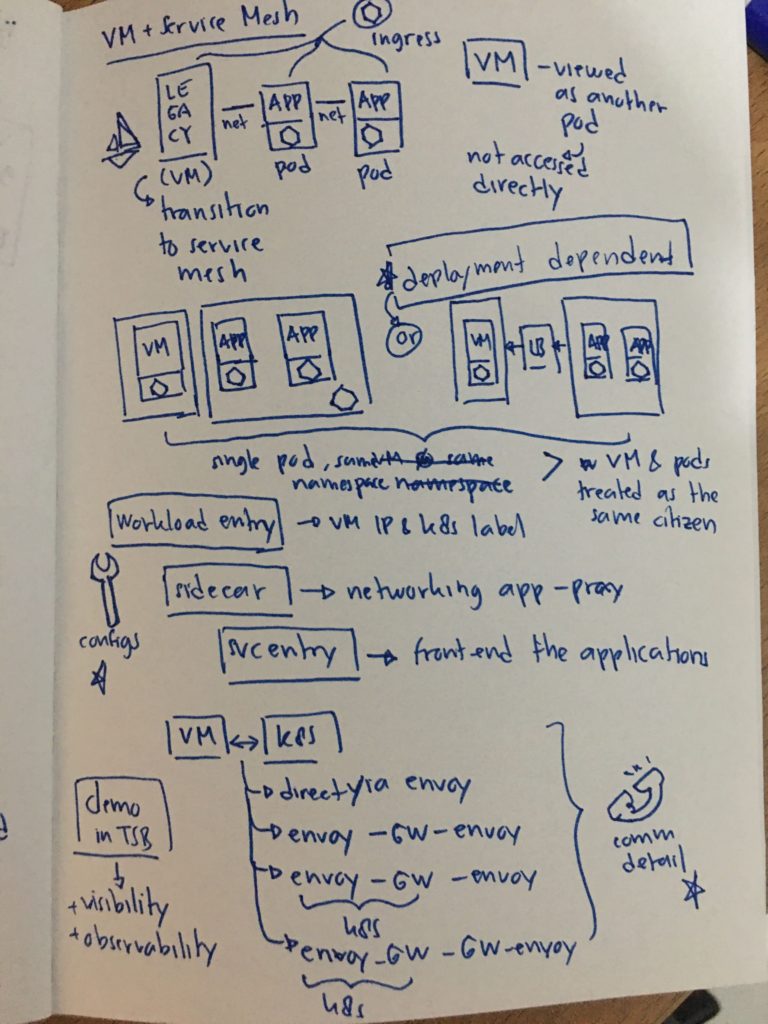 VM + Service Mesh
ingress
LE
GA
CY
(VM)
net
APP
pod
net
APP
pod
transition
to service
mesh
VM
- viewed
as another
pod
not accessed
directly
deployment dependent
or
VM
APP
APP
VM
LB
APP
APP
single pod, same
namespace
VM & pods
treated as the
same citizen
workload entry → VM IP & k8s label
sidecar → networking app-proxy
configs
svc entry → front-end the applications
VM ↔ k8s
directly via envoy
envoy - GW - envoy
envoy - GW - envoy
k8s
envoy - GW - GW - envoy
k8s
demo
in TSB
+ visibility
+ observability
comm
detail